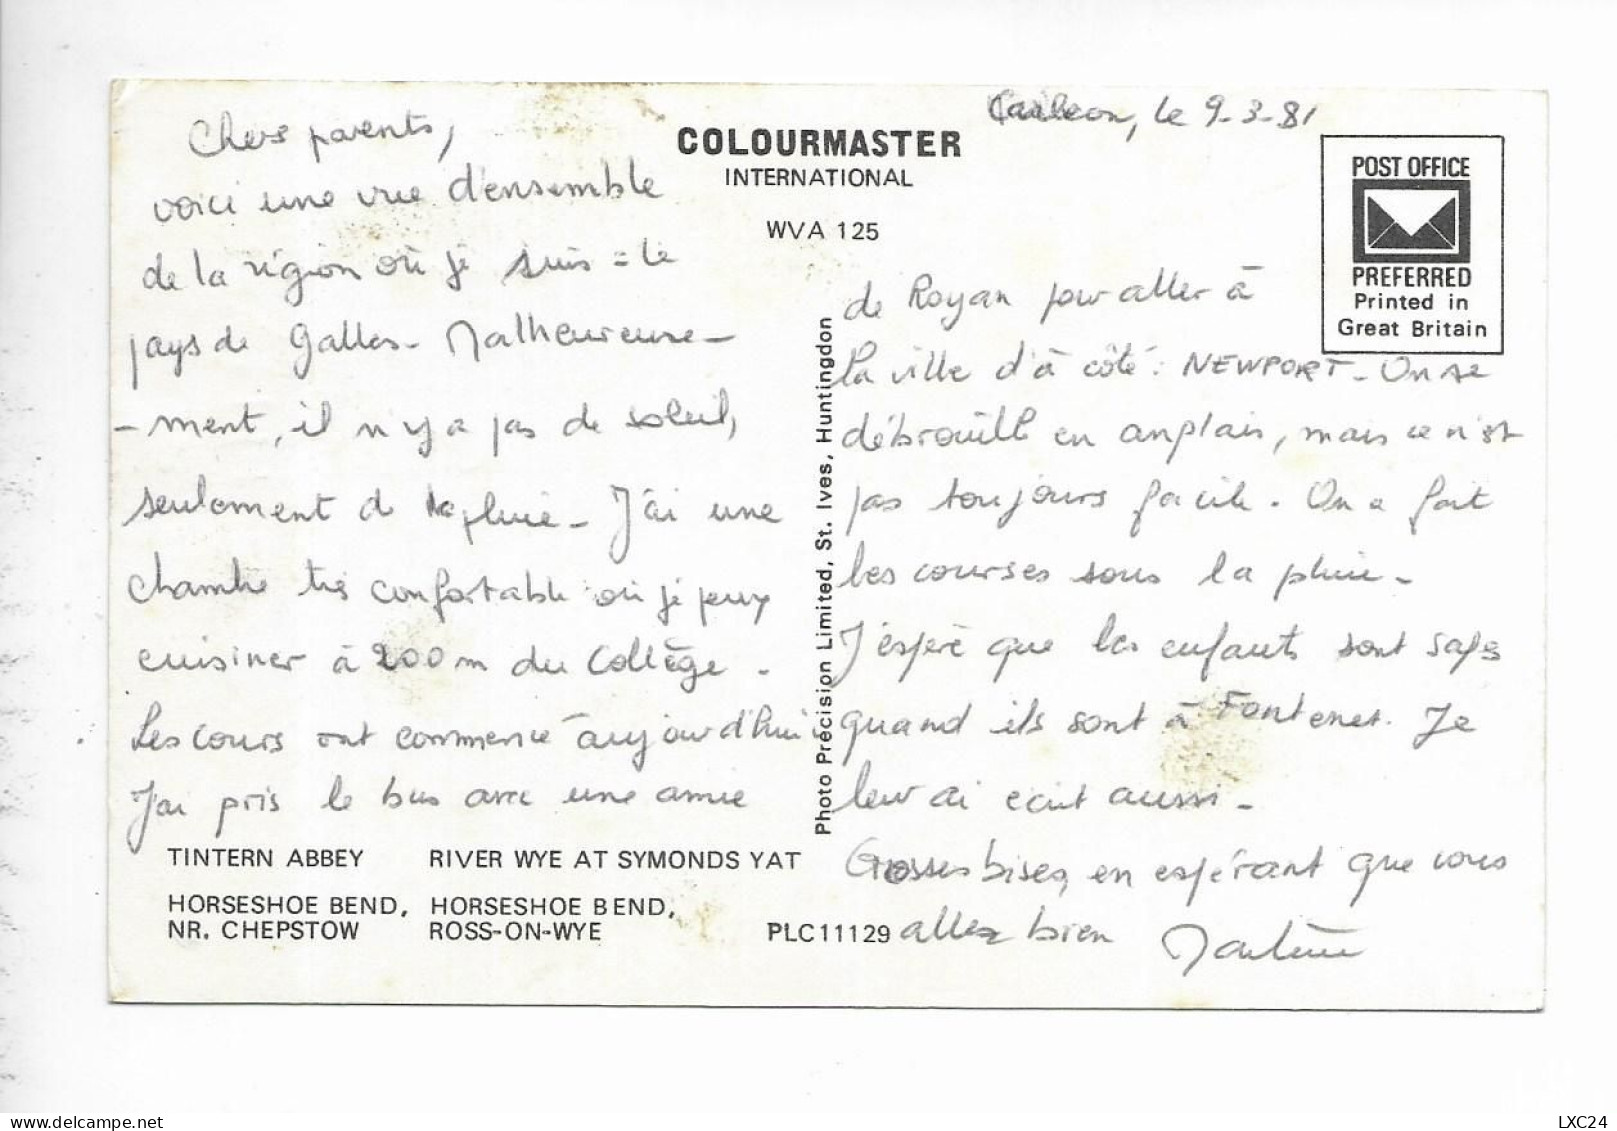 Caerleon, le 9-3-81
Chers parents,
voici une vue d'ensemble
de la région où je suis = le
pays de Galles - Malheureuse-
-ment, il n'y a pas de soleil,
seulement de la pluie - J'ai une
chambre très confortable où je peux
cuisiner à 200m du Collège -
Les cours ont commencé aujourd'hui
J'ai pris le bus avec une amie
de Royan pour aller à
la ville d'à côté : NEWPORT - On se
débrouille en anglais, mais ce n'est
pas toujours facile. On a fait
les courses sous la pluie -
J'espère que les enfants sont sages
quand ils sont à Fontenet. Je
leur ai écrit aussi -
Grosses bises, en espérant que vous
allez bien
COLOURMASTER
INTERNATIONAL
WVA 125
POST OFFICE
PREFERRED
Printed in
Great Britain
Photo Precision Limited, St. Ives, Huntingdon
TINTERN ABBEY
RIVER WYE AT SYMONDS YAT
HORSESHOE BEND,
NR. CHEPSTOW
HORSESHOE BEND,
ROSS-ON-WYE
PLC11129
LXC24